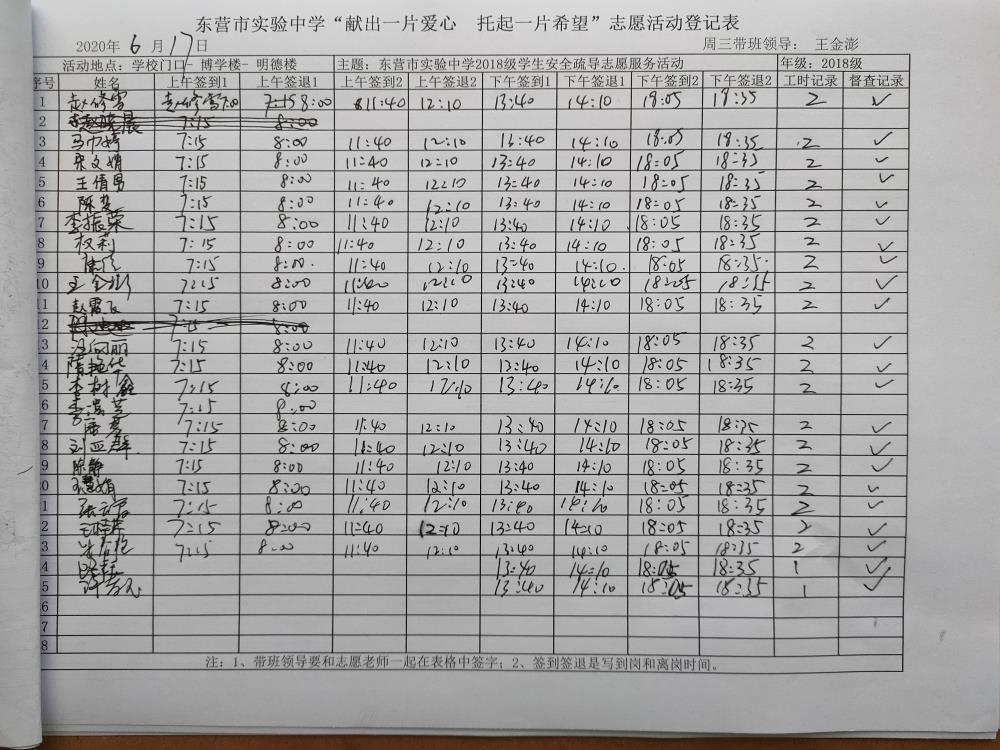 东营市实验中学“献出一片爱心 托起一片希望”志愿活动登记表
2020年 6 月 17 日 周三带班领导： 王金澎
活动地点：学校门口- 博学楼- 明德楼 主题：东营市实验中学2018级学生安全疏导志愿服务活动 年级：2018级
序号 姓名 上午签到1 上午签退1 上午签到2 上午签退2 下午签到1 下午签退1 下午签到2 下午签退2 工时记录 督查记录
1 赵修雪 赵修雪7:00 7:15 8:00 11:40 12:10 13:40 14:10 18:05 18:35 2 ✓
2 7:15 8:00
3 7:15 8:00 11:40 12:10 13:40 14:10 18:05 18:35 2 ✓
4 宋文娟 7:15 8:00 11:40 12:10 13:40 14:10 18:05 18:35 2 ✓
5 王倩男 7:15 8:00 11:40 12:10 13:40 14:10 18:05 18:35 2 ✓
6 7:15 8:00 11:40 12:10 13:40 14:10 18:05 18:35 2 ✓
7 李振荣 7:15 8:00 11:40 12:10 13:40 14:10 18:05 18:35 2 ✓
8 权莉 7:15 8:00 11:40 12:10 13:40 14:10 18:05 18:35 2 ✓
9 7:15 8:00 11:40 12:10 13:40 14:10 18:05 18:35 2 ✓
10 王金澎 7:15 8:00 11:40 12:10 13:40 14:10 18:05 18:35 2 ✓
11 赵霞飞 7:15 8:00 11:40 12:10 13:40 14:10 18:05 18:35 2 ✓
12 7:15 8:00
3 汪向丽 7:15 8:00 11:40 12:10 13:40 14:10 18:05 18:35 2 ✓
4 隋艳华 7:15 8:00 11:40 12:10 13:40 14:10 18:05 18:35 2 ✓
5 李树鑫 7:15 8:00 11:40 12:10 13:40 14:10 18:05 18:35 2 ✓
6 7:15 8:00
7 7:15 8:00 11:40 12:10 13:40 14:10 18:05 18:35 2 ✓
8 刘亚群 7:15 8:00 11:40 12:10 13:40 14:10 18:05 18:35 2 ✓
9 陈静 7:15 8:00 11:40 12:10 13:40 14:10 18:05 18:35 2 ✓
20 王慧娟 7:15 8:00 11:40 12:10 13:40 14:10 18:05 18:35 2 ✓
1 7:15 8:00 11:40 12:10 13:40 14:10 18:05 18:35 2 ✓
2 7:15 8:00 11:40 12:10 13:40 14:10 18:05 18:35 2 ✓
3 7:15 8:00 11:40 12:10 13:40 14:10 18:05 18:35 2 ✓
4 13:40 14:10 18:05 18:35 1 ✓
5 13:40 14:10 18:05 18:35 1 ✓
6
7
8
注：1、带班领导要和志愿老师一起在表格中签字；2、签到签退是写到岗和离岗时间。